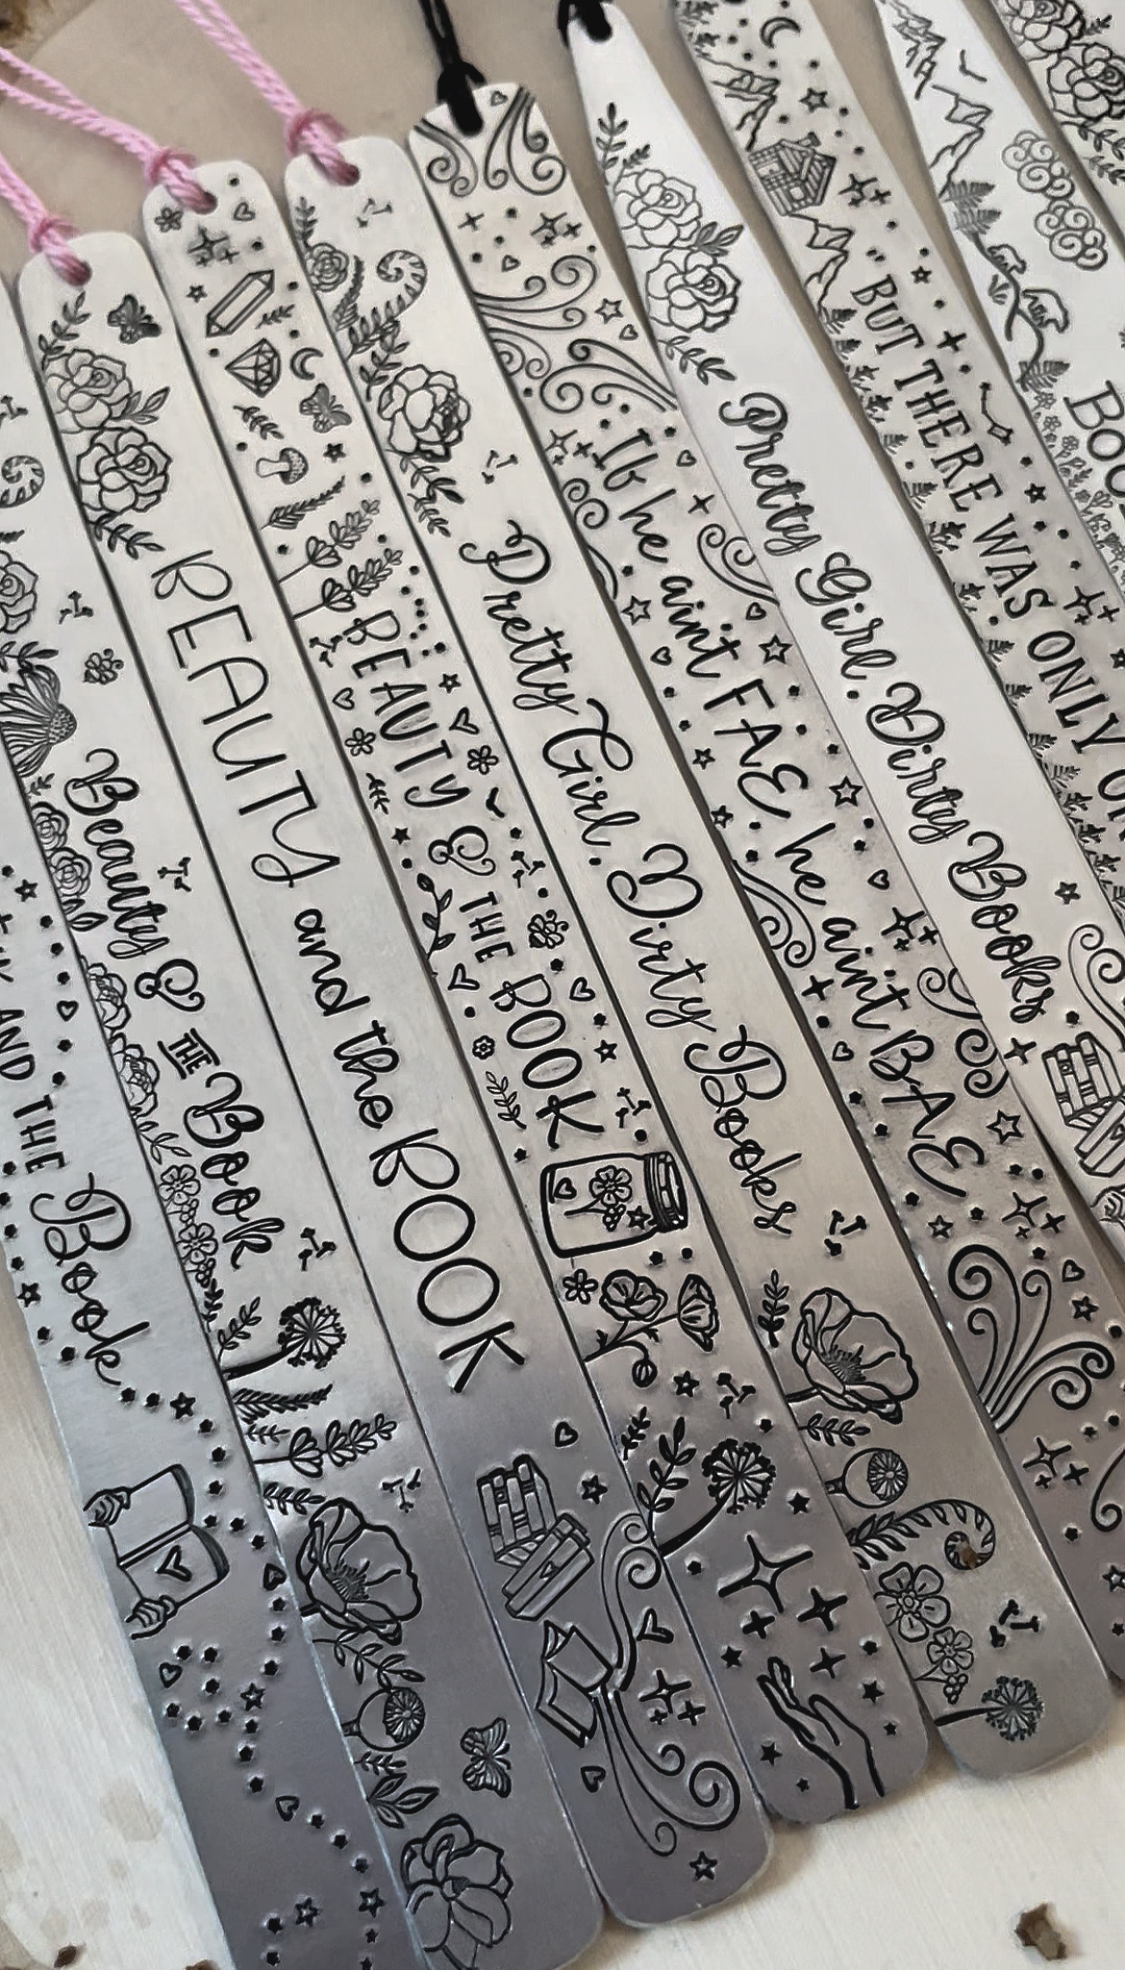 AND THE Book
Beauty & THE Book
BEAUTY and the BOOK
BEAUTY & THE BOOK
Pretty Girl. Dirty Books
If he ain't FAE. he ain't BAE
Pretty Girl. Dirty Books
"BUT THERE WAS ONLY